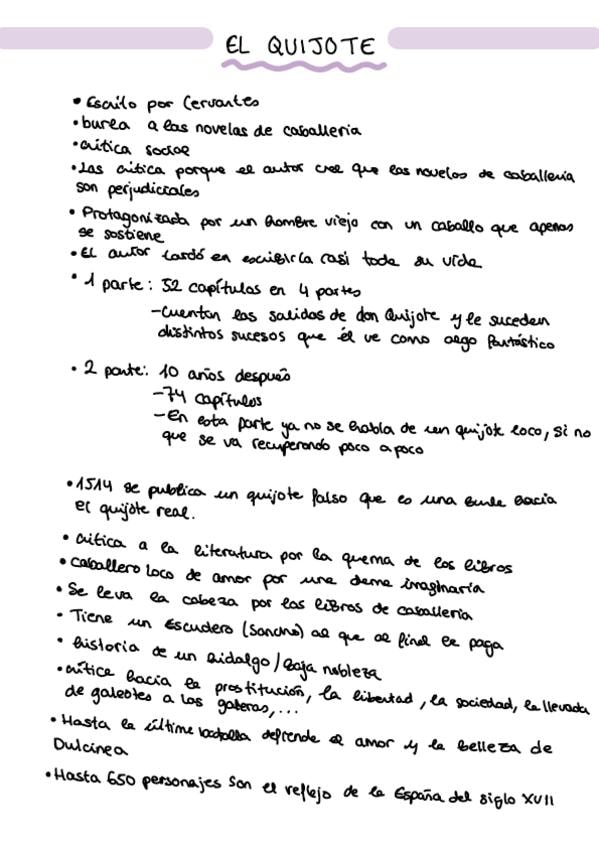 EL QUIJOTE
• Escrito por Cervantes
• burla a las novelas de caballeria
• critica social
• Las critica porque el autor cree que las novelas de caballeria
son perjudiciales
• Protagonizada por un hombre viejo con un caballo que apenas
se sostiene
• El autor tardó en escribirla casi toda su vida
• 1 parte: 52 capítulos en 4 partes
- Cuentan las salidas de don Quijote y le suceden
distintos sucesos que él ve como algo fantástico
• 2 parte: 10 años después
- 74 capítulos
- En esta parte ya no se habla de un quijote loco, si no
que se va recuperando poco a poco
• 1514 se publica un quijote falso que es una burla hacia
el quijote real.
• critica a la literatura por la quema de los libros
• caballero loco de amor por una dama imaginaria
• Se leva la cabeza por los libros de caballeria
• Tiene un Escudero (Sancho) al que al final le paga
• historia de un hidalgo / baja nobleza
• critica hacia la prostitución, la libertad, la sociedad, la llevada
de galeotes a las galeras,...
• Hasta la última batalla defiende el amor y la belleza de
Dulcinea
• Hasta 650 personajes son el reflejo de la España del siglo XVII